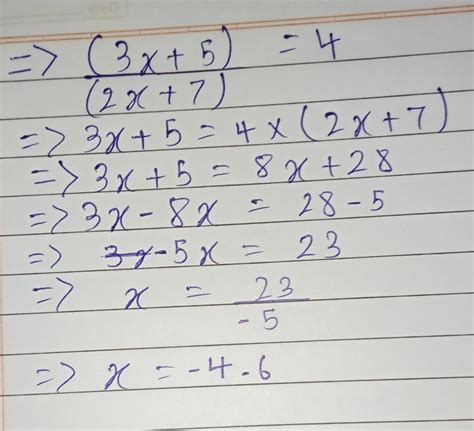 => (3x+5) / (2x+7) = 4
=> 3x+5 = 4×(2x+7)
=> 3x+5 = 8x+28
=> 3x-8x = 28-5
=> 3x-5x = 23
=> x = 23 / -5
=> x = -4.6